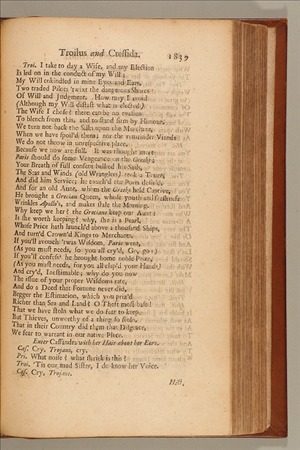 Troilus and Cressida. 1839
Troi. I take to day a Wife, and my Election
Is led on in the conduct of my Will;
My Will enkindled in mine Eyes and Ears,
Two traded Pilots 'twixt the dangerous Shores
Of Will and Judgment. How may I avoid
(Although my Will distast what is elected)
The Wife I chose? there can be no evasion
To blench from this, and to stand firm by Honour.
We turn not back the Silks upon the Merchant,
When we have spoil'd them; nor the remainder Viands
We do not throw in unrespective place,
Because we now are full. It was thought meet
Paris should do some Vengeance on the Greeks;
Your Breath of full consent bellied his Sails,
The Seas and Winds (old Wranglers) took a Truce,
And did him Service; he touch'd the Ports desir'd,
And for an old Aunt, whom the Greeks held Captive,
He brought a Grecian Queen, whose youth and freshness
Wrinkles Apollo's, and makes stale the Morning.
Why keep we her? the Grecians keep our Aunt:
Is she worth keeping? why, she is a Pearl,
Whose Price hath launch'd above a thousand Ships,
And turn'd Crown'd Kings to Merchants.
If you'll avouch 'twas Wisdom, Paris went,
(As you must needs, for you all cry'd, Go, go:)
If you'll confess he brought home noble Prize,
(As you must needs, for you all clap'd your Hands)
And cry'd, Inestimable; why do you now
The issue of your proper Wisdoms rate,
And do a Deed that Fortune never did,
Begger the Estimation, which you priz'd
Richer than Sea and Land? O Theft most base!
That we have stoln what we do fear to keep.
But Thieves, unworthy of a thing so stoln,
That in their Country did them that Disgrace,
We fear to warrant in our native Place.
Enter Cassandra with her Hair about her Ears.
Cas. Cry, Trojans, cry.
Pri. What noise? what shriek is this?
Troi. 'Tis our mad Sister, I do know her Voice.
Cas. Cry, Trojans.
Hect.